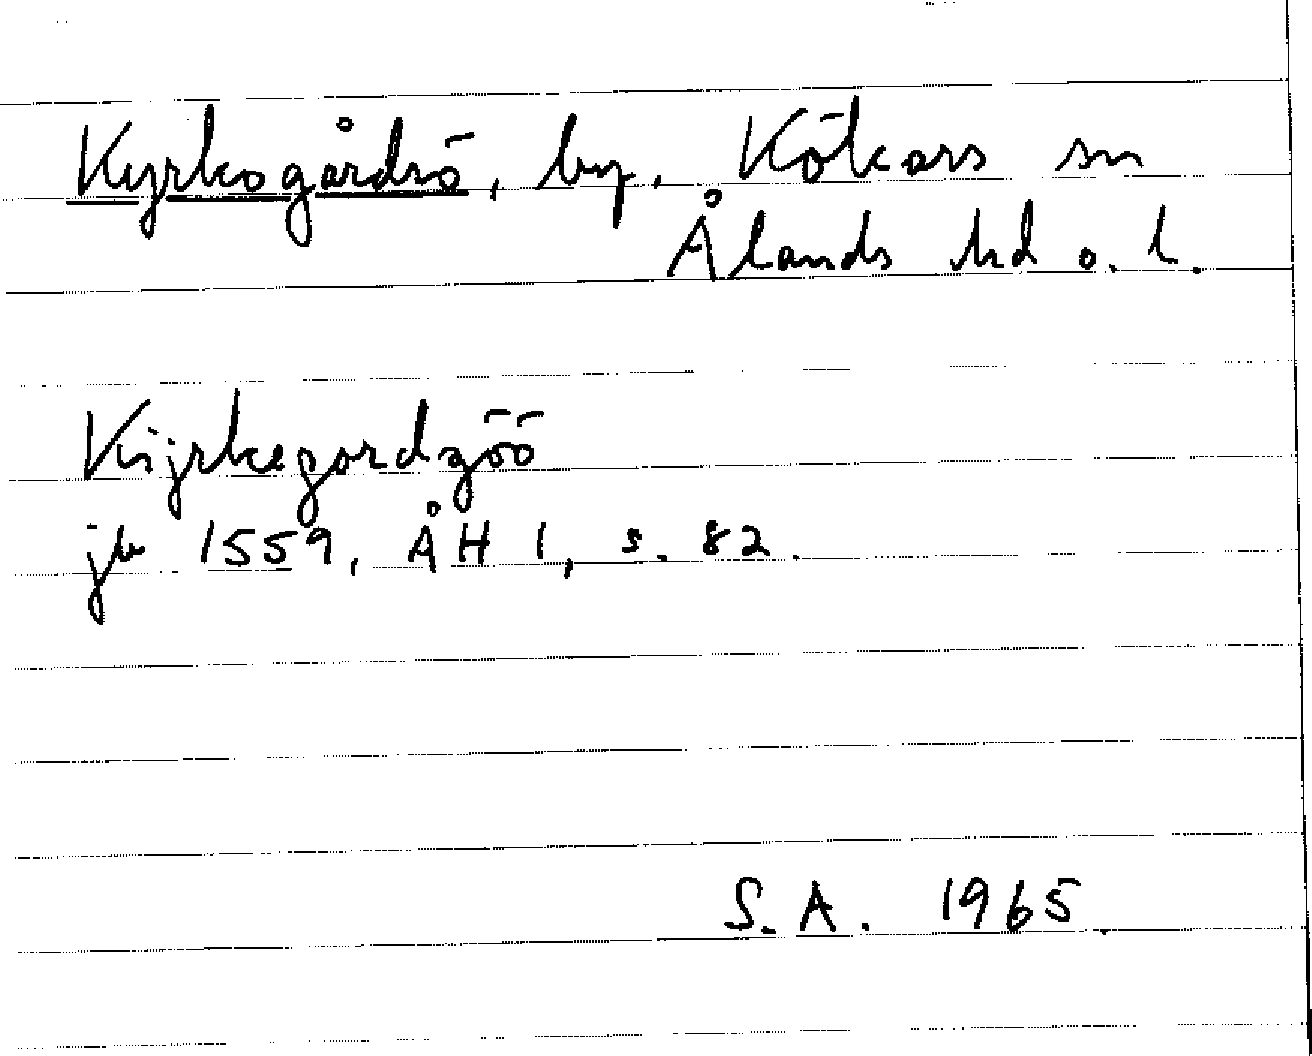 Kyrkogårdsö, by, Kökars sn
Ålands hd o. l.
Kijrkegordzöö
jb 1559, ÅH 1, s. 82.
S.A. 1965.